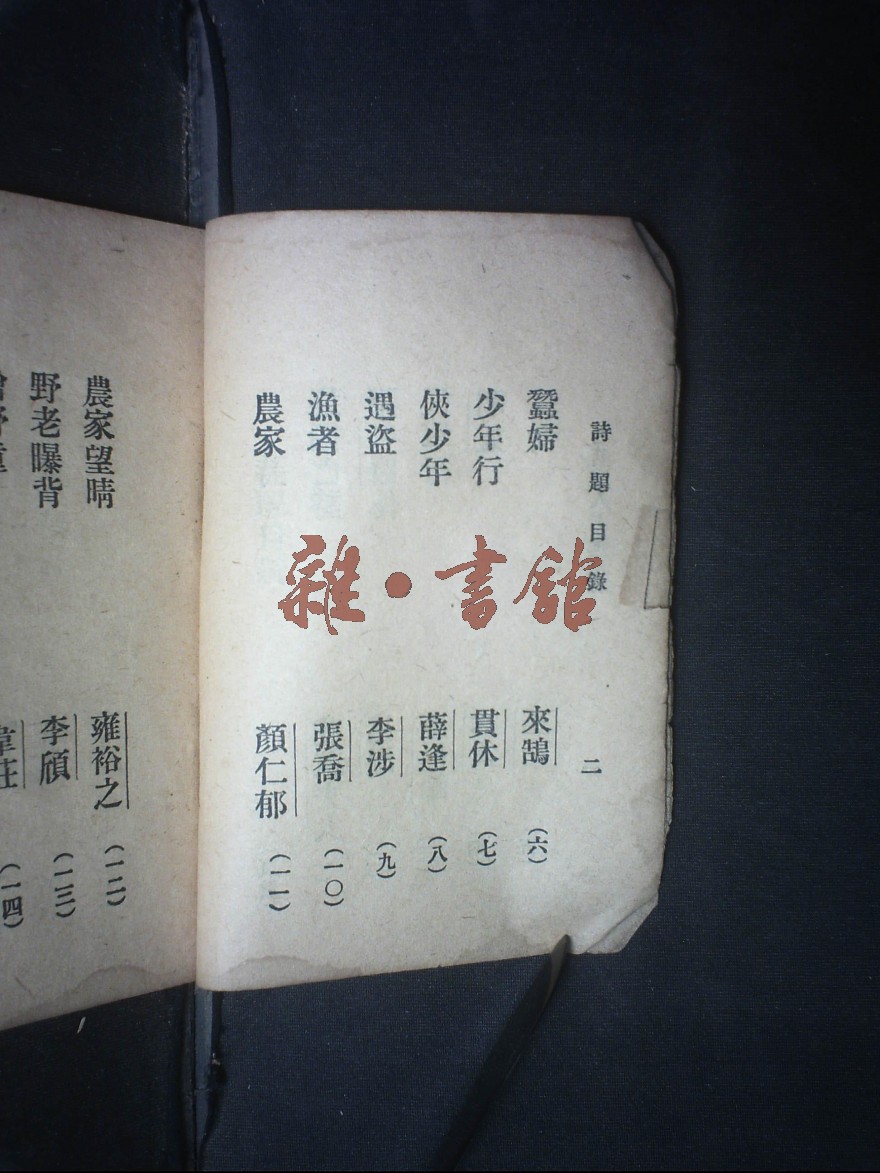 詩題目錄 二
蠶婦 來鵠 (六)
少年行 貫休 (七)
俠少年 薛逢 (八)
遇盜 李涉 (九)
漁者 張喬 (一〇)
農家 顏仁郁 (一一)
農家望晴 雍裕之 (一二)
野老曝背 李頎 (一三)
韋莊 (一四)
雜·書館